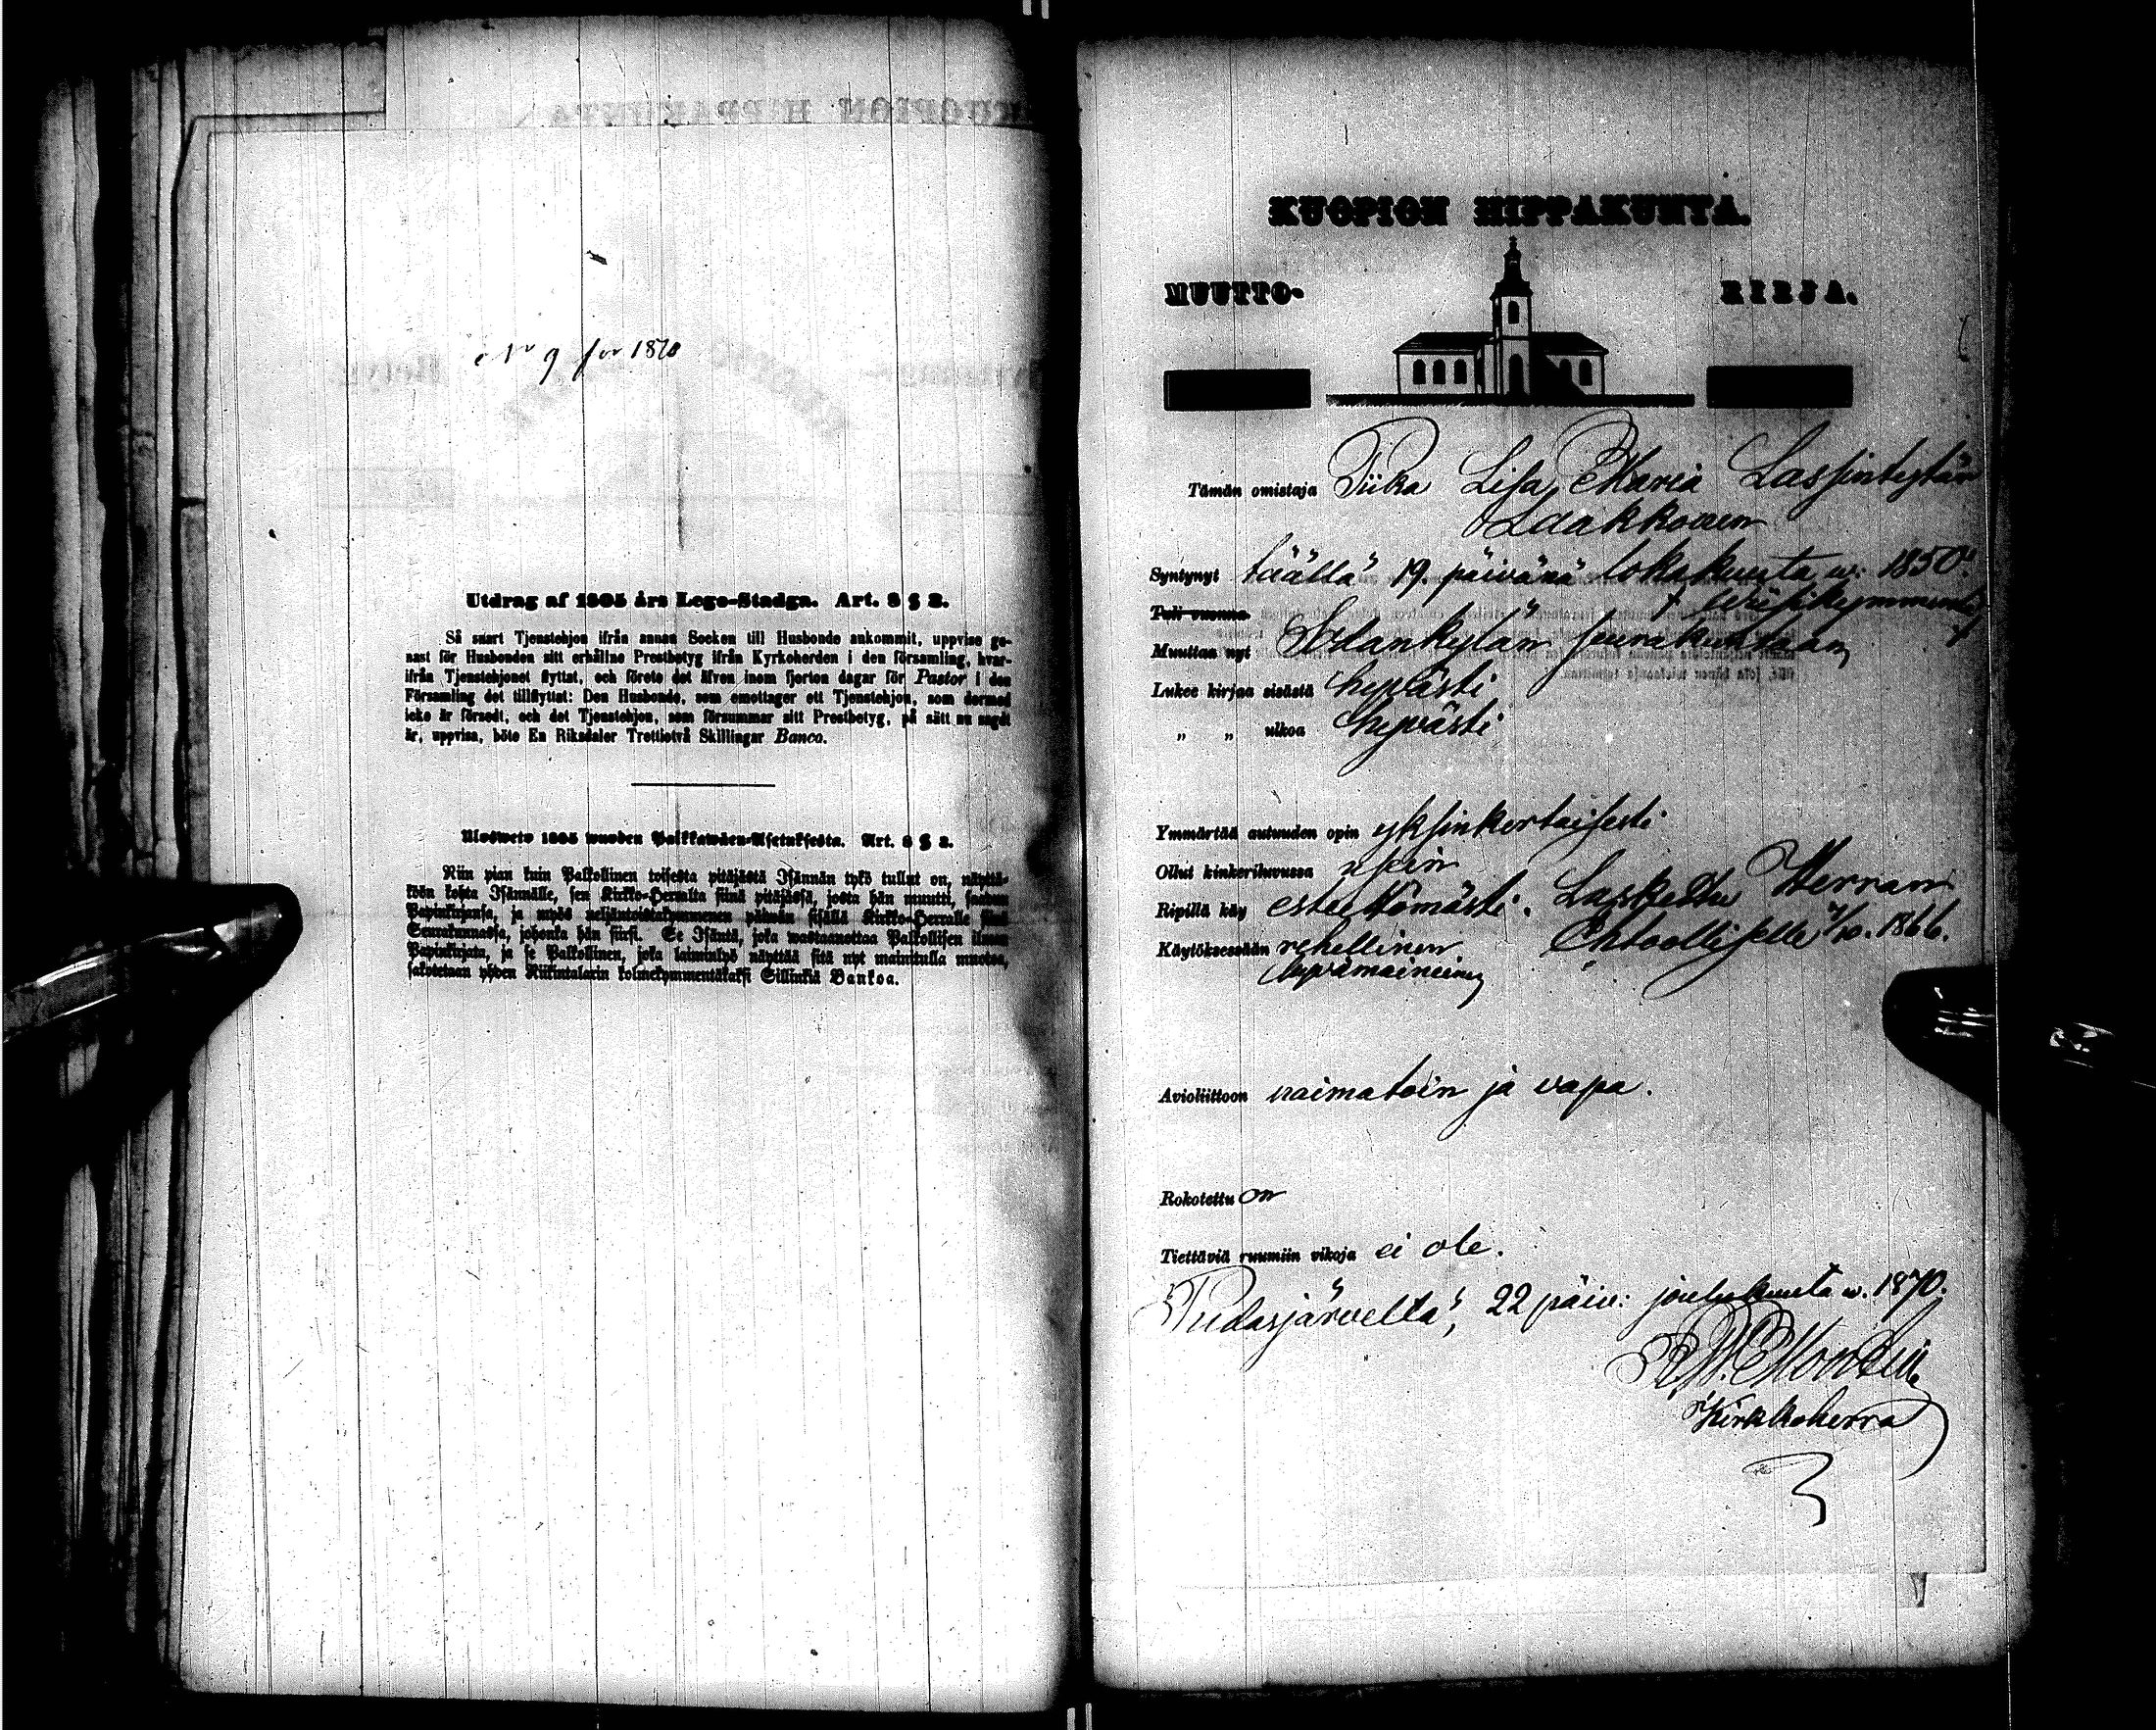 No 9 för 1870
Utdrag af 1805 års Lego-Stadga. Art. 8 § 2.
Så snart Tjenstehjon ifrån annan Socken till Husbonde ankommit, uppvise ge-
nast för Husbonden sitt erhållne Prestbetyg ifrån Kyrkoherden i den församling, hvar-
ifrån Tjenstehjonet flyttat, och förete det äfven inom fjorton dagar för Pastor i den
Församling det tillflyttat: Den Husbonde, som emottager ett Tjenstehjon, som dermed
icke är försedt, och det Tjenstehjon, som försummar sitt Prestbetyg, på sätt nu sagdt
är, uppvisa, böte En Riksdaler Trettiotvå Skillingar Banco.
Ulosweto 1805 wuoden Palkkawäen-Asetuksesta. Art. 8 § 2.
Niin pian kuin Palkollinen toisesta pitäjästä Isännän tykö tullut on, näyttä-
köön kohta Isännälle, sen Kirkko-Herralta siinä pitäjässä, josta hän muutti, saadun
Papinkirjansa, ja myös neljäntoistakymmenen päiwän sisällä Kirkko-Herralle siinä
Seurakunnassa, johonka hän siirsi. Se Isäntä, joka wastaanottaa Palkollisen ilman
Papinkirjata, ja se Palkollinen, joka laiminlyö näyttää sitä nyt mainitulla muotoa,
sakotetaan yhden Riikintalarin kolmekymmentäkaksi Sillinkiä Bankoa.
KUOPION HIPPAKUNTA.
MUUTTO- KIRJA.
Tämän omistaja Piika Lisa Maria Lassintytär
Laakkonen
Syntynyt täällä 19. päivänä lokakuuta w: 1850
Tuli vuonna + Wiisikymmentä +
Muuttaa nyt Sodankylän seurakuntaan
Lukee kirjaa sisästä hyvästi
„ „ ulkoa hyvästi
Ymmärtää autuuden opin yksinkertaisesti
Ollut kinkeriluvussa usein
Ripillä käy esteettömästi. Laskettu Herran
Käytöksessään rehellinen Ehtoolliselle /10. 1866.
hyvämaineinen
Avioliittoon naimatoin ja vapa.
Rokotettu on
Tiettäviä ruumiin vikoja ei ole.
Pudasjärveltä, 22 päiv: joulukuuta w. 1870.
Kirkkoherra